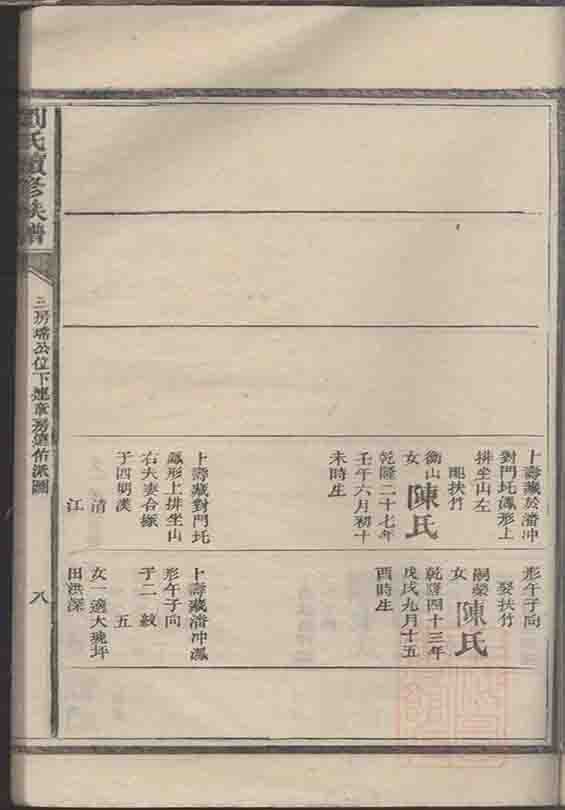 十壽藏於潘冲
對門圫鳳形上
排坐山左
配扶竹
衡山
女
陳氏
乾隆二十七年
壬午六月初十
未時生
十壽藏對門圫
鳳形上排坐山
右夫妻合塚
子四朝漢
清
江
形午子向
娶扶竹
嗣榮
女
陳氏
乾隆四十三年
戊戌九月十五
酉時生
十壽藏潘冲鳳
形午子向
子二
五
女一適大瓏坪
田洪深
劉氏續修族譜
三房瑺公位下連章房達佑派圖
八